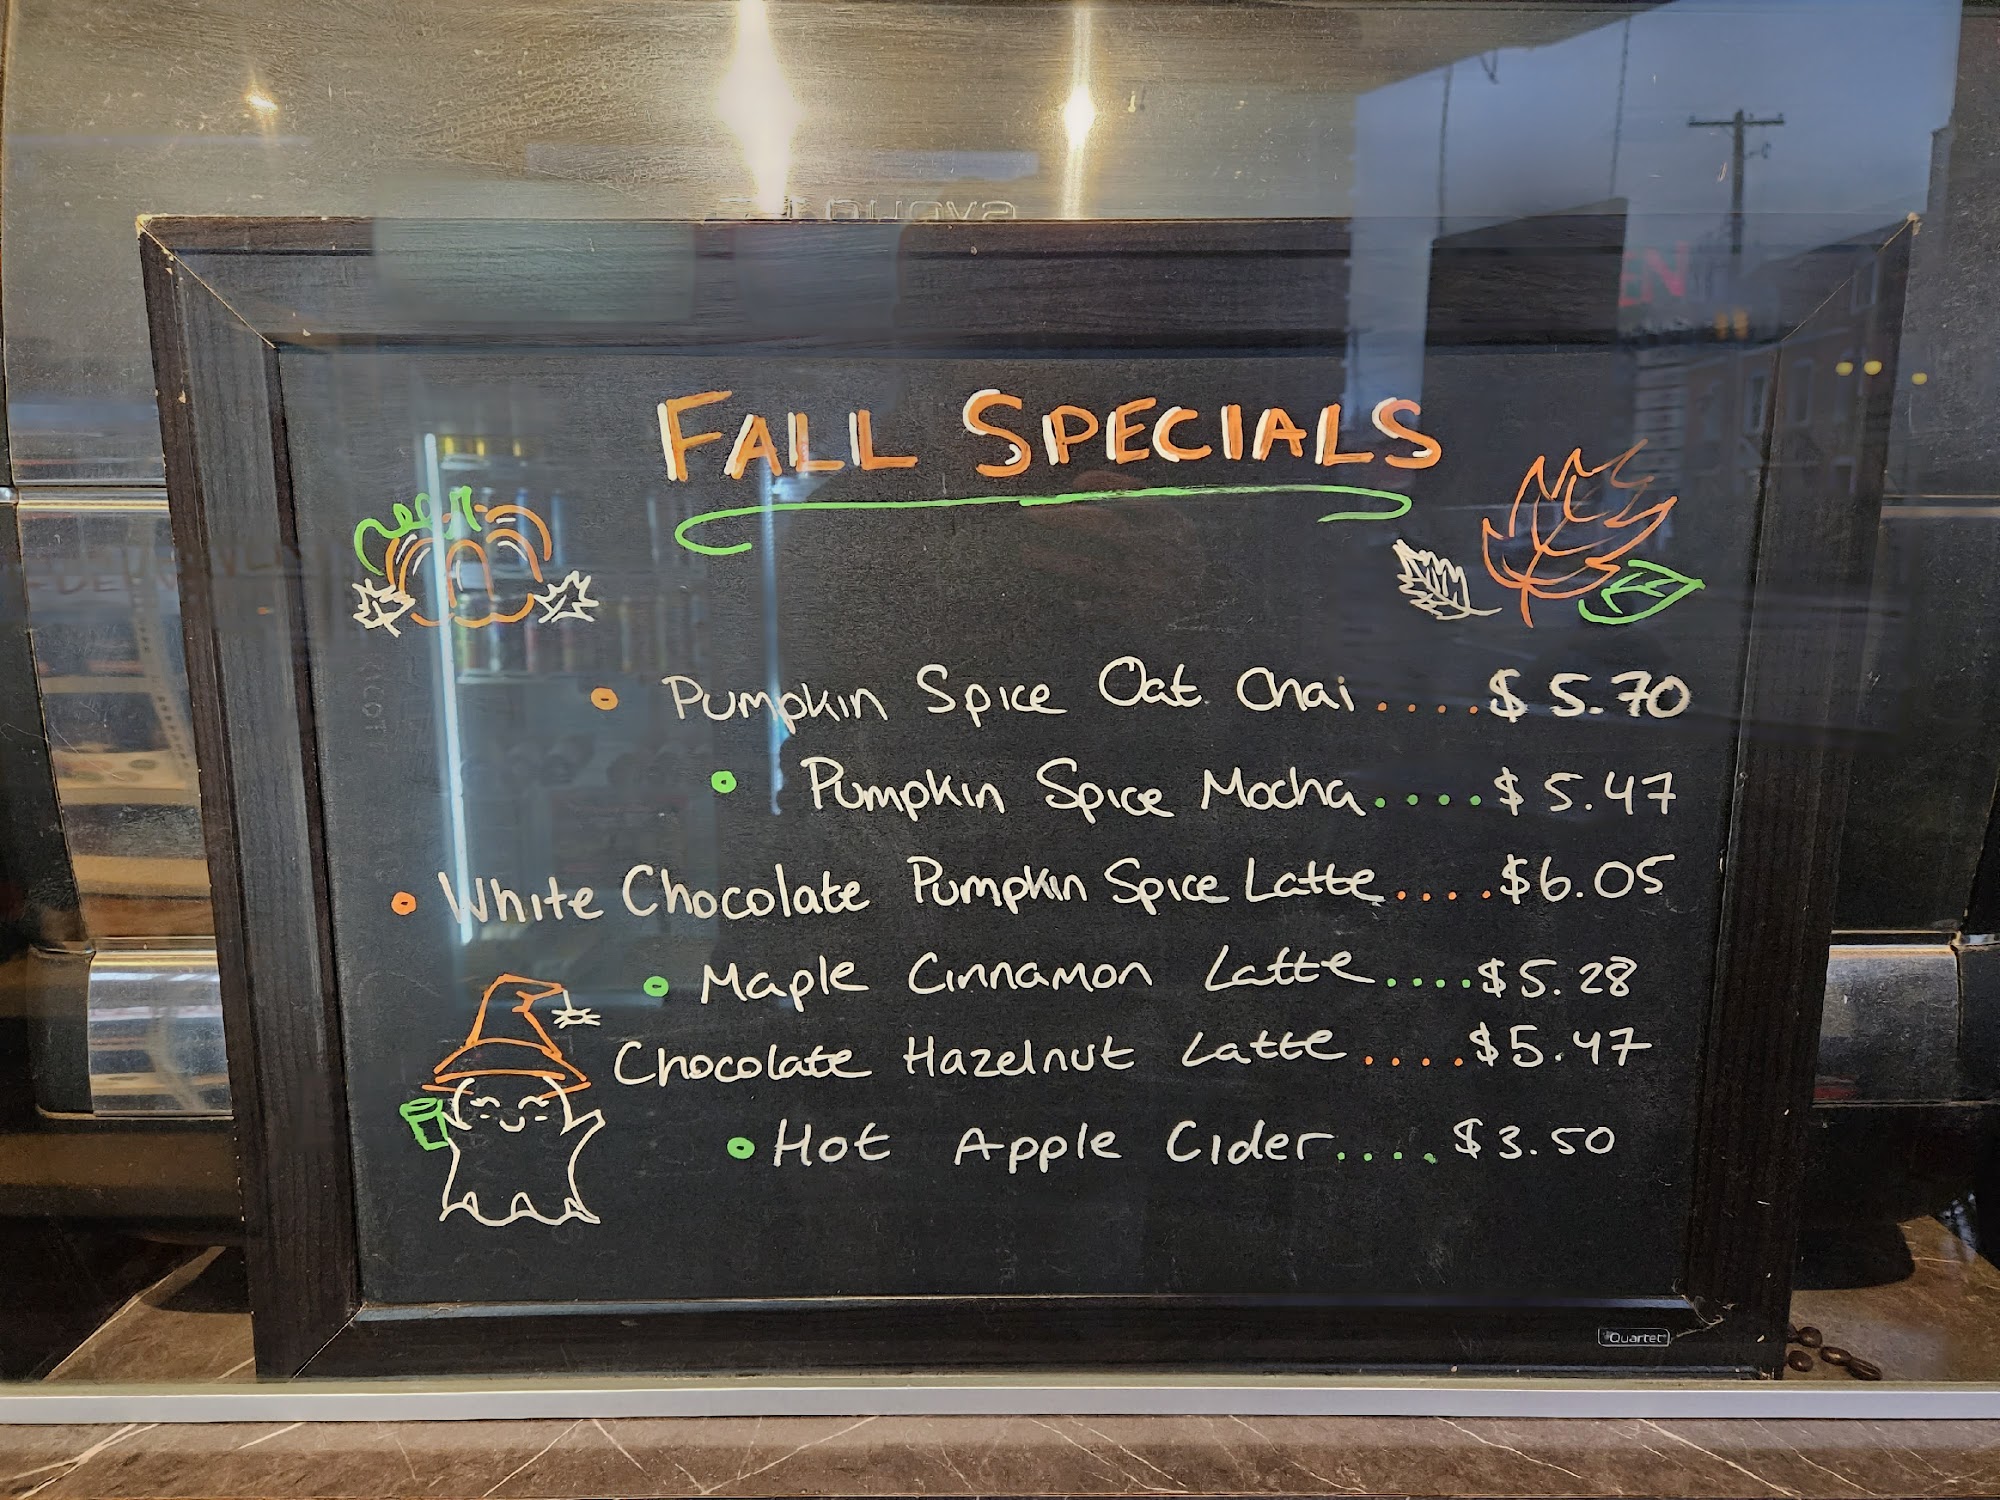 FALL SPECIALS
Pumpkin Spice Oat Chai....$5.70
Pumpkin Spice Mocha....$5.47
White Chocolate Pumpkin Spice Latte....$6.05
Maple Cinnamon Latte....$5.28
Chocolate Hazelnut Latte....$5.47
Hot Apple Cider....$3.50
Quartet